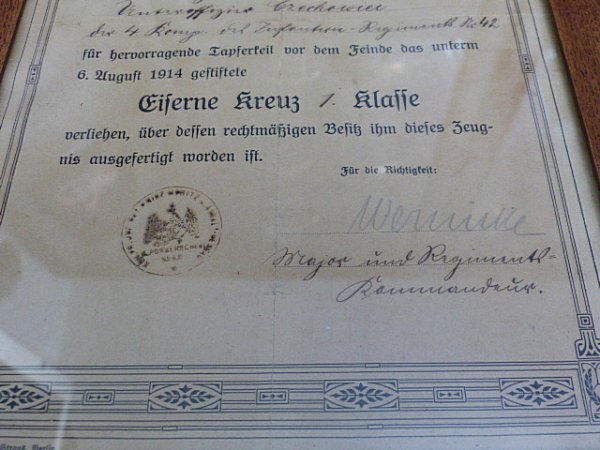 Unteroffizier Czechowicz
der 4 Komp. des Infanterie-Regiments No 42
für hervorragende Tapferkeit vor dem Feinde das unterm
6. August 1914 gestiftete
Eiserne Kreuz 1. Klasse
verliehen, über dessen rechtmäßigen Besitz ihm dieses Zeug-
nis ausgefertigt worden ist.
Für die Richtigkeit:
Major und Regiments-
Kommandeur.
Berlin